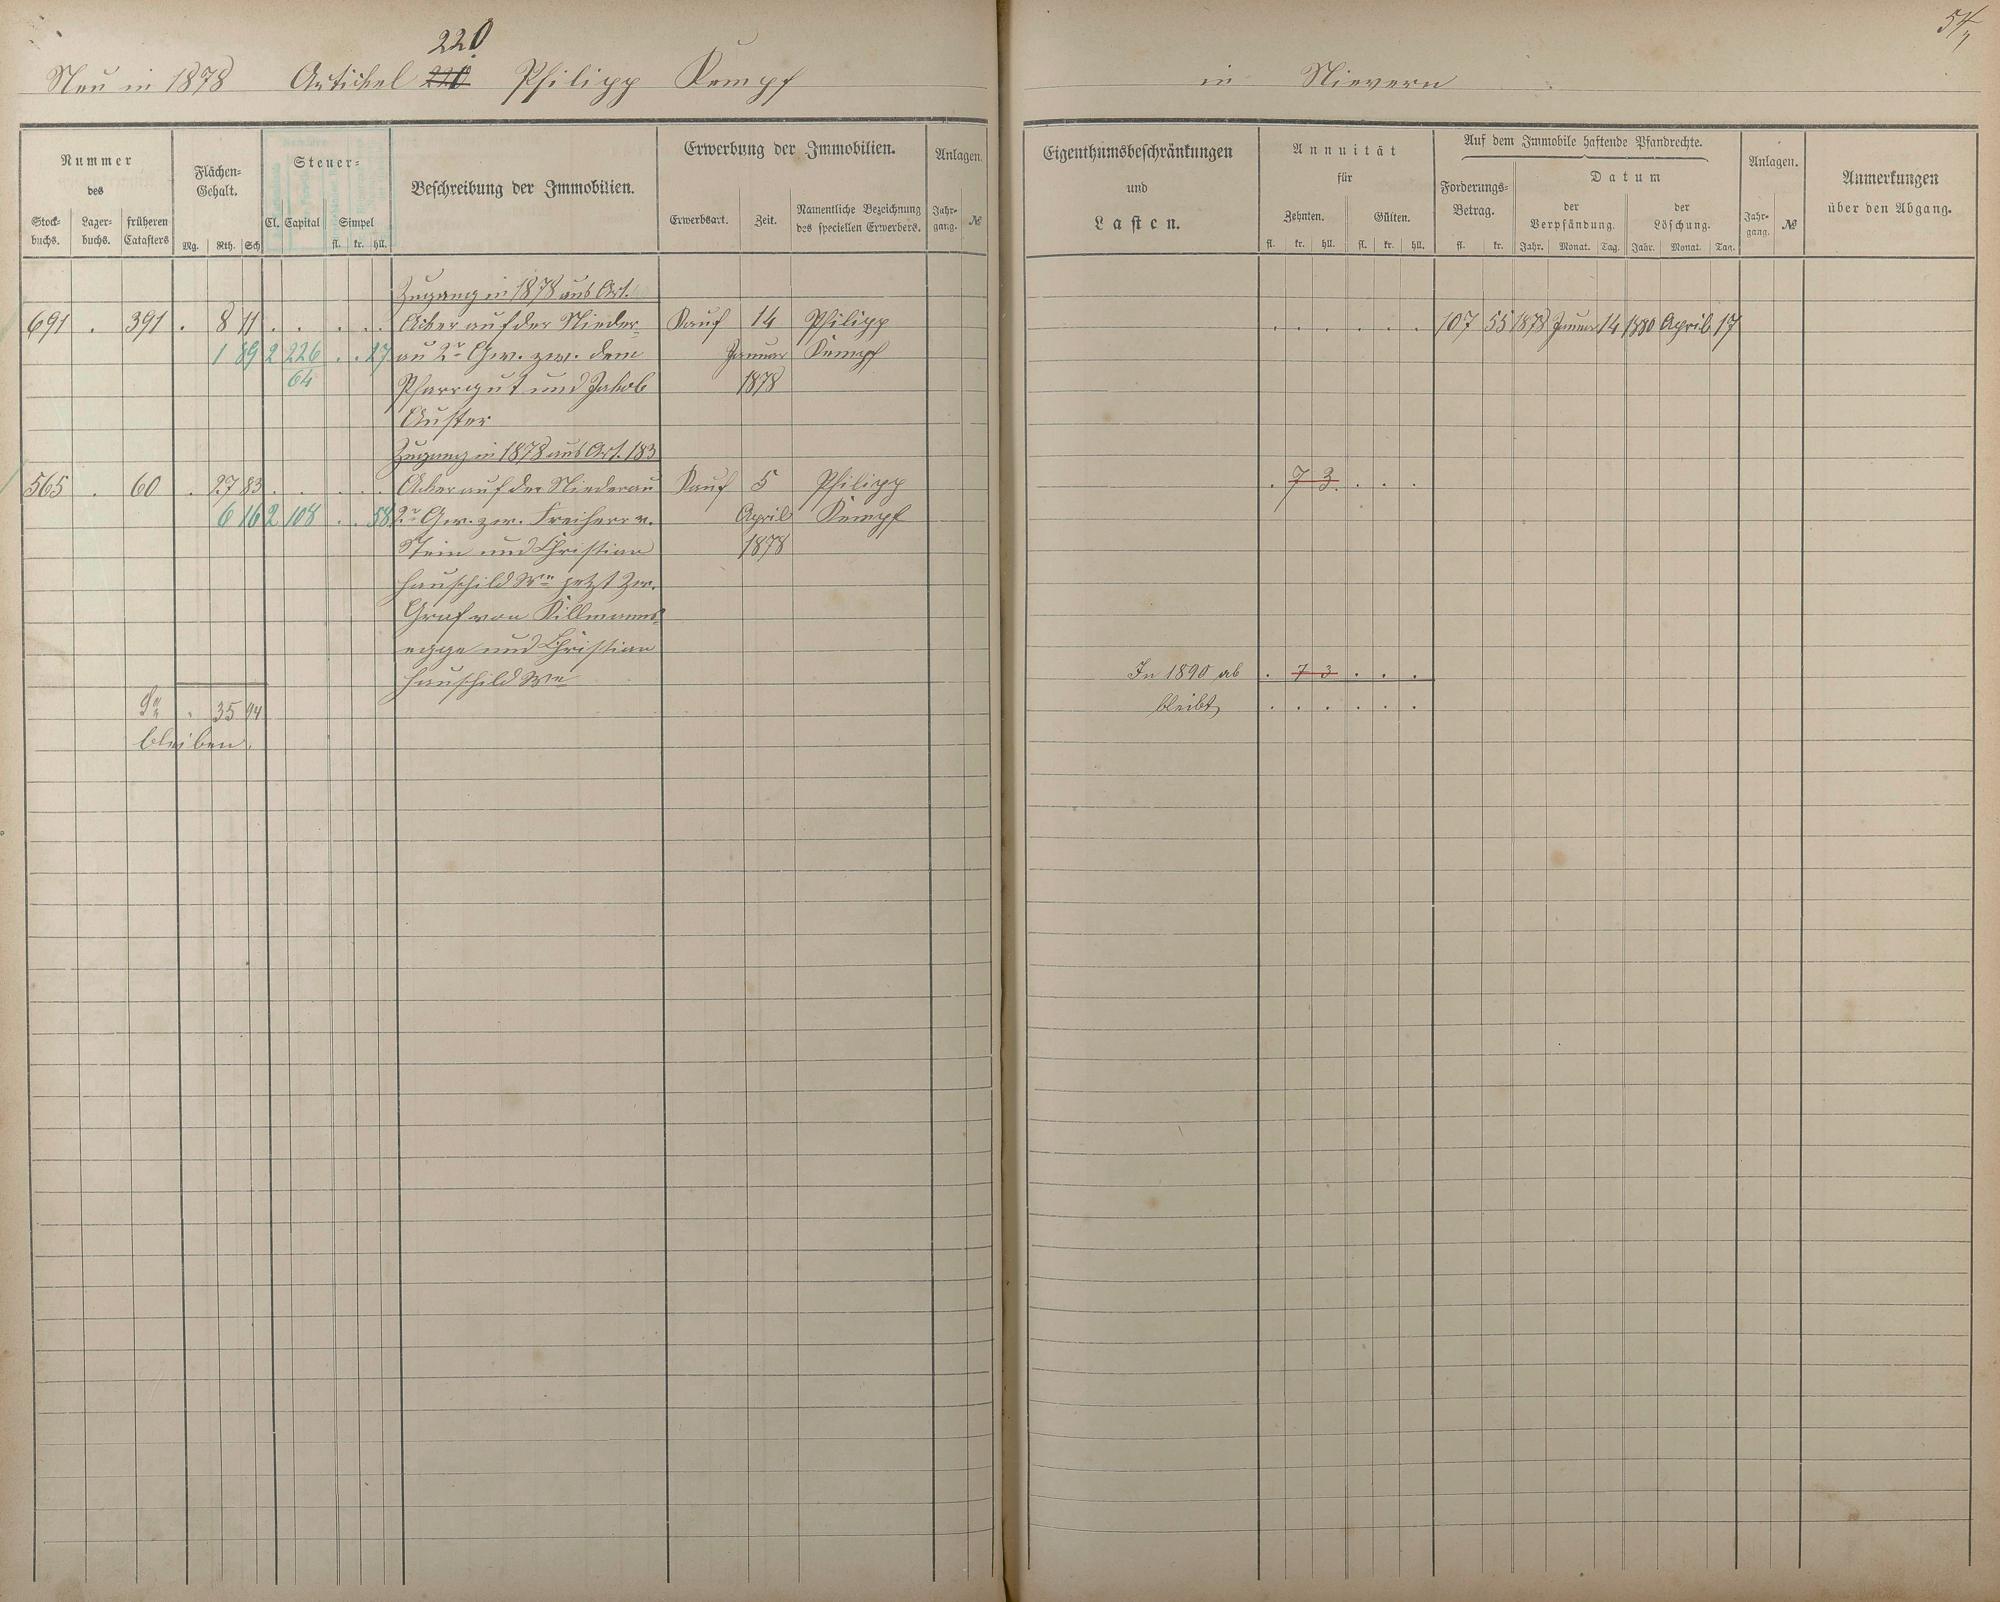 220
Neu in 1878 Artikel 220 Philipp Kempf
Nummer
des
Stock-
buchs.
Lager-
buchs.
früheren
Catasters
Flächen-
Gehalt.
Mg. Rth. Sch
Steuer-
Cl. Capital Simpel
fl. kr. hll.
Beschreibung der Immobilien.
Erwerbung der Immobilien.
Erwerbsart. Zeit.
Namentliche Bezeichnung
des speciellen Erwerbers.
Anlagen.
Jahr-
gang. №
Zugang in 1878 aus Art.
691 . 391 . 8 11 . . . . . Acker auf der Nieder- Kauf 14 Philipp
1 89 2 226 . . 27 au 2r Gew. zw. dem Januar Kempf
64 Pfarrgut und Jakob 1878
Auster
Zugang in 1878 aus Art. 183
565 . 60 . 27 83 . . . . . Acker auf der Niederau Kauf 5 Philipp
6 16 2 108 . . 58 2r Gew. zw. Freiherr v. April Kempf
Stein und Christian 1878
Hauschild We jetzt zw.
Graf von Killmanns-
egge und Christian
Hauschild We
Sa . 35 94
bleiben.
54
in Nievern
Eigenthumsbeschränkungen
und
Lasten.
Annuität
für
Zehnten. Gülten.
fl. kr. hll. fl. kr. hll.
Auf dem Immobile haftende Pfandrechte.
Forderungs-
Betrag.
fl. kr.
Datum
der
Verpfändung.
Jahr. Monat. Tag.
der
Löschung.
Jahr. Monat. Tag.
Anlagen.
Jahr-
gang. №
Anmerkungen
über den Abgang.
. . . . . . 107 55 1878 Januar 14 1880 April 17
. 7 3 . . .
In 1890 ab . 7 3 . . .
bleibt . . . . . .